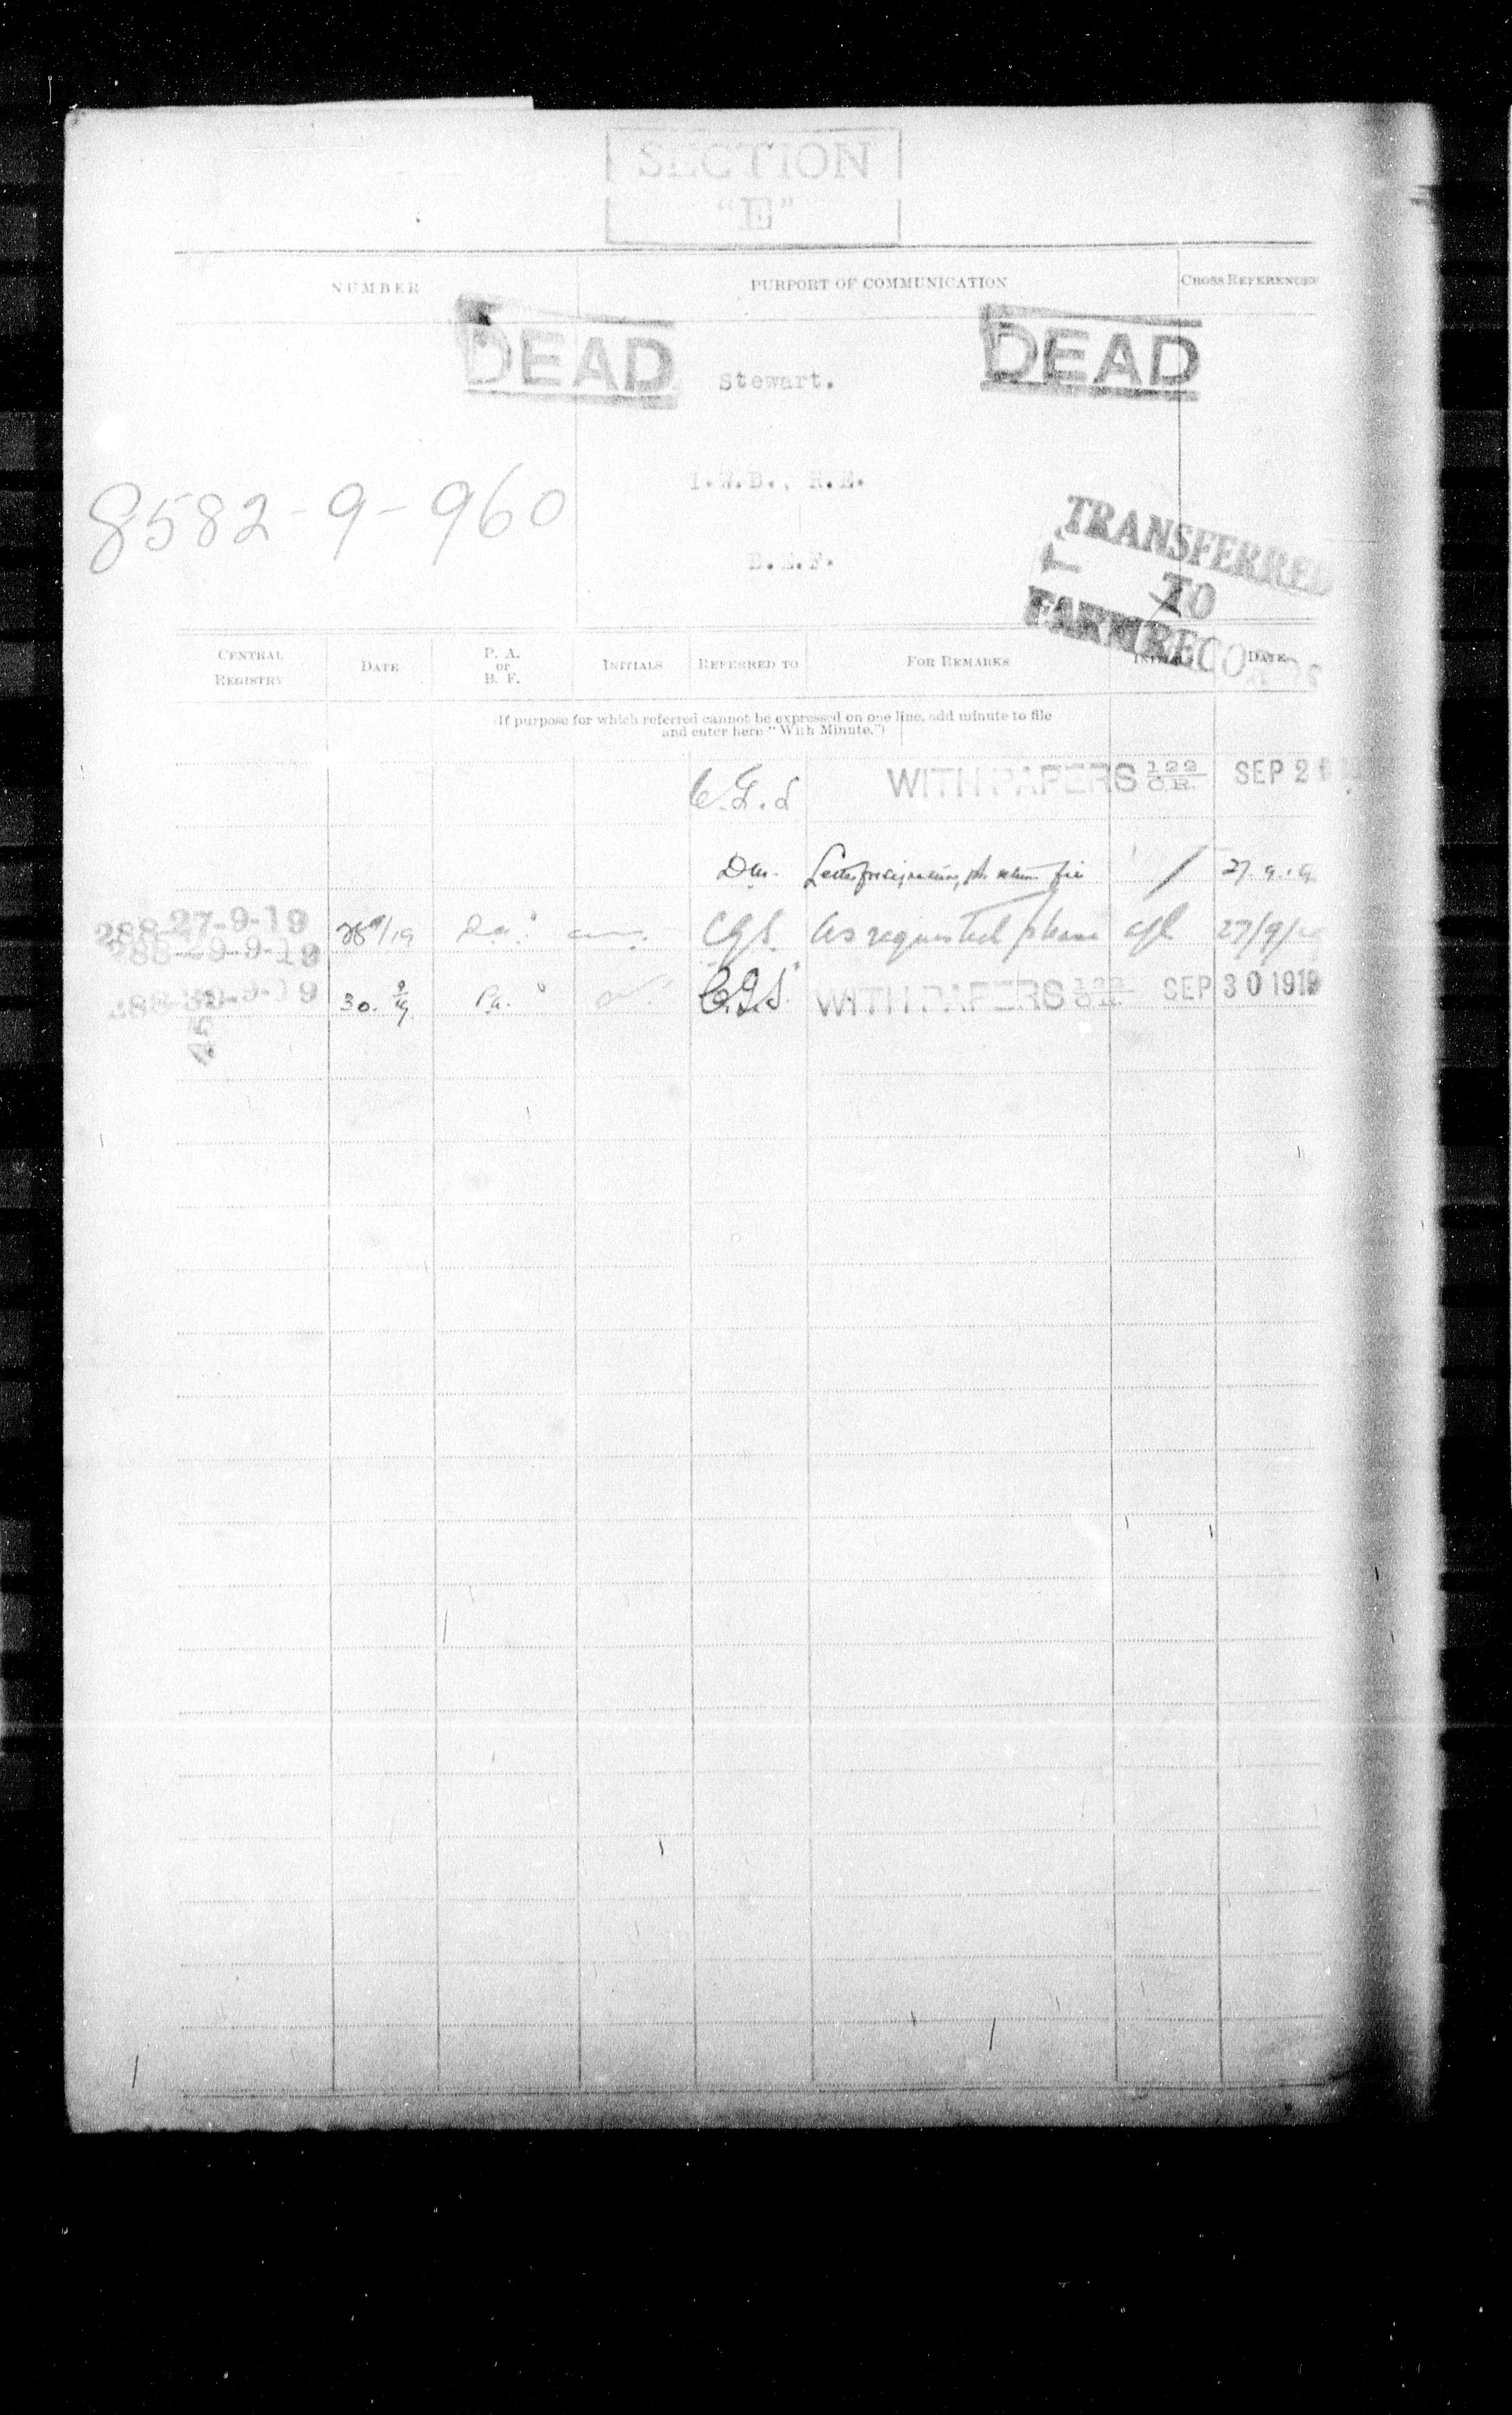 SECTION
"E"
NUMBER PURPORT OF COMMUNICATION CROSS REFERENCES
DEAD Stewart. DEAD
8582-9-960 I.W.D., R.E.
B.E.F.
TRANSFERRED
TO
RECORDS
CENTRAL REGISTRY DATE P. A. or B. F. INITIALS REFERRED TO FOR REMARKS INITIALS DATE
(If purpose for which referred cannot be expressed on one line, add minute to file
and enter here "With Minute.")
C.G.S WITH PAPERS 122/O.R. SEP 2
Dm. 27.9.19
288-27-9-19 CGS. As requested please 27/9/19
288-29-9-19
288-30-9-19 30. 9/19 Pa. C.G.S. WITH PAPERS SEP 30 1919